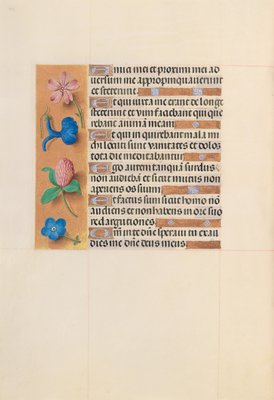 Amici mei et proximi mei ad
uersum me appropinquauerunt
et steterunt.
Et qui iuxta me erant de longe
steterunt et vim faciebant qui que
rebant animā meam
Et qui inquirebant mala mi
chi locuti sunt vanitates et dolos
tota die meditabantur
Ego autem tanquā surdus
non audiebā et sicut mutus non
aperiens os suum
Et factus sum sicut homo nō
audiens et non habens in ore suo
redargutiones
Qm̄ in te dn̄e speraui tu exau
dies me dn̄e deus meus